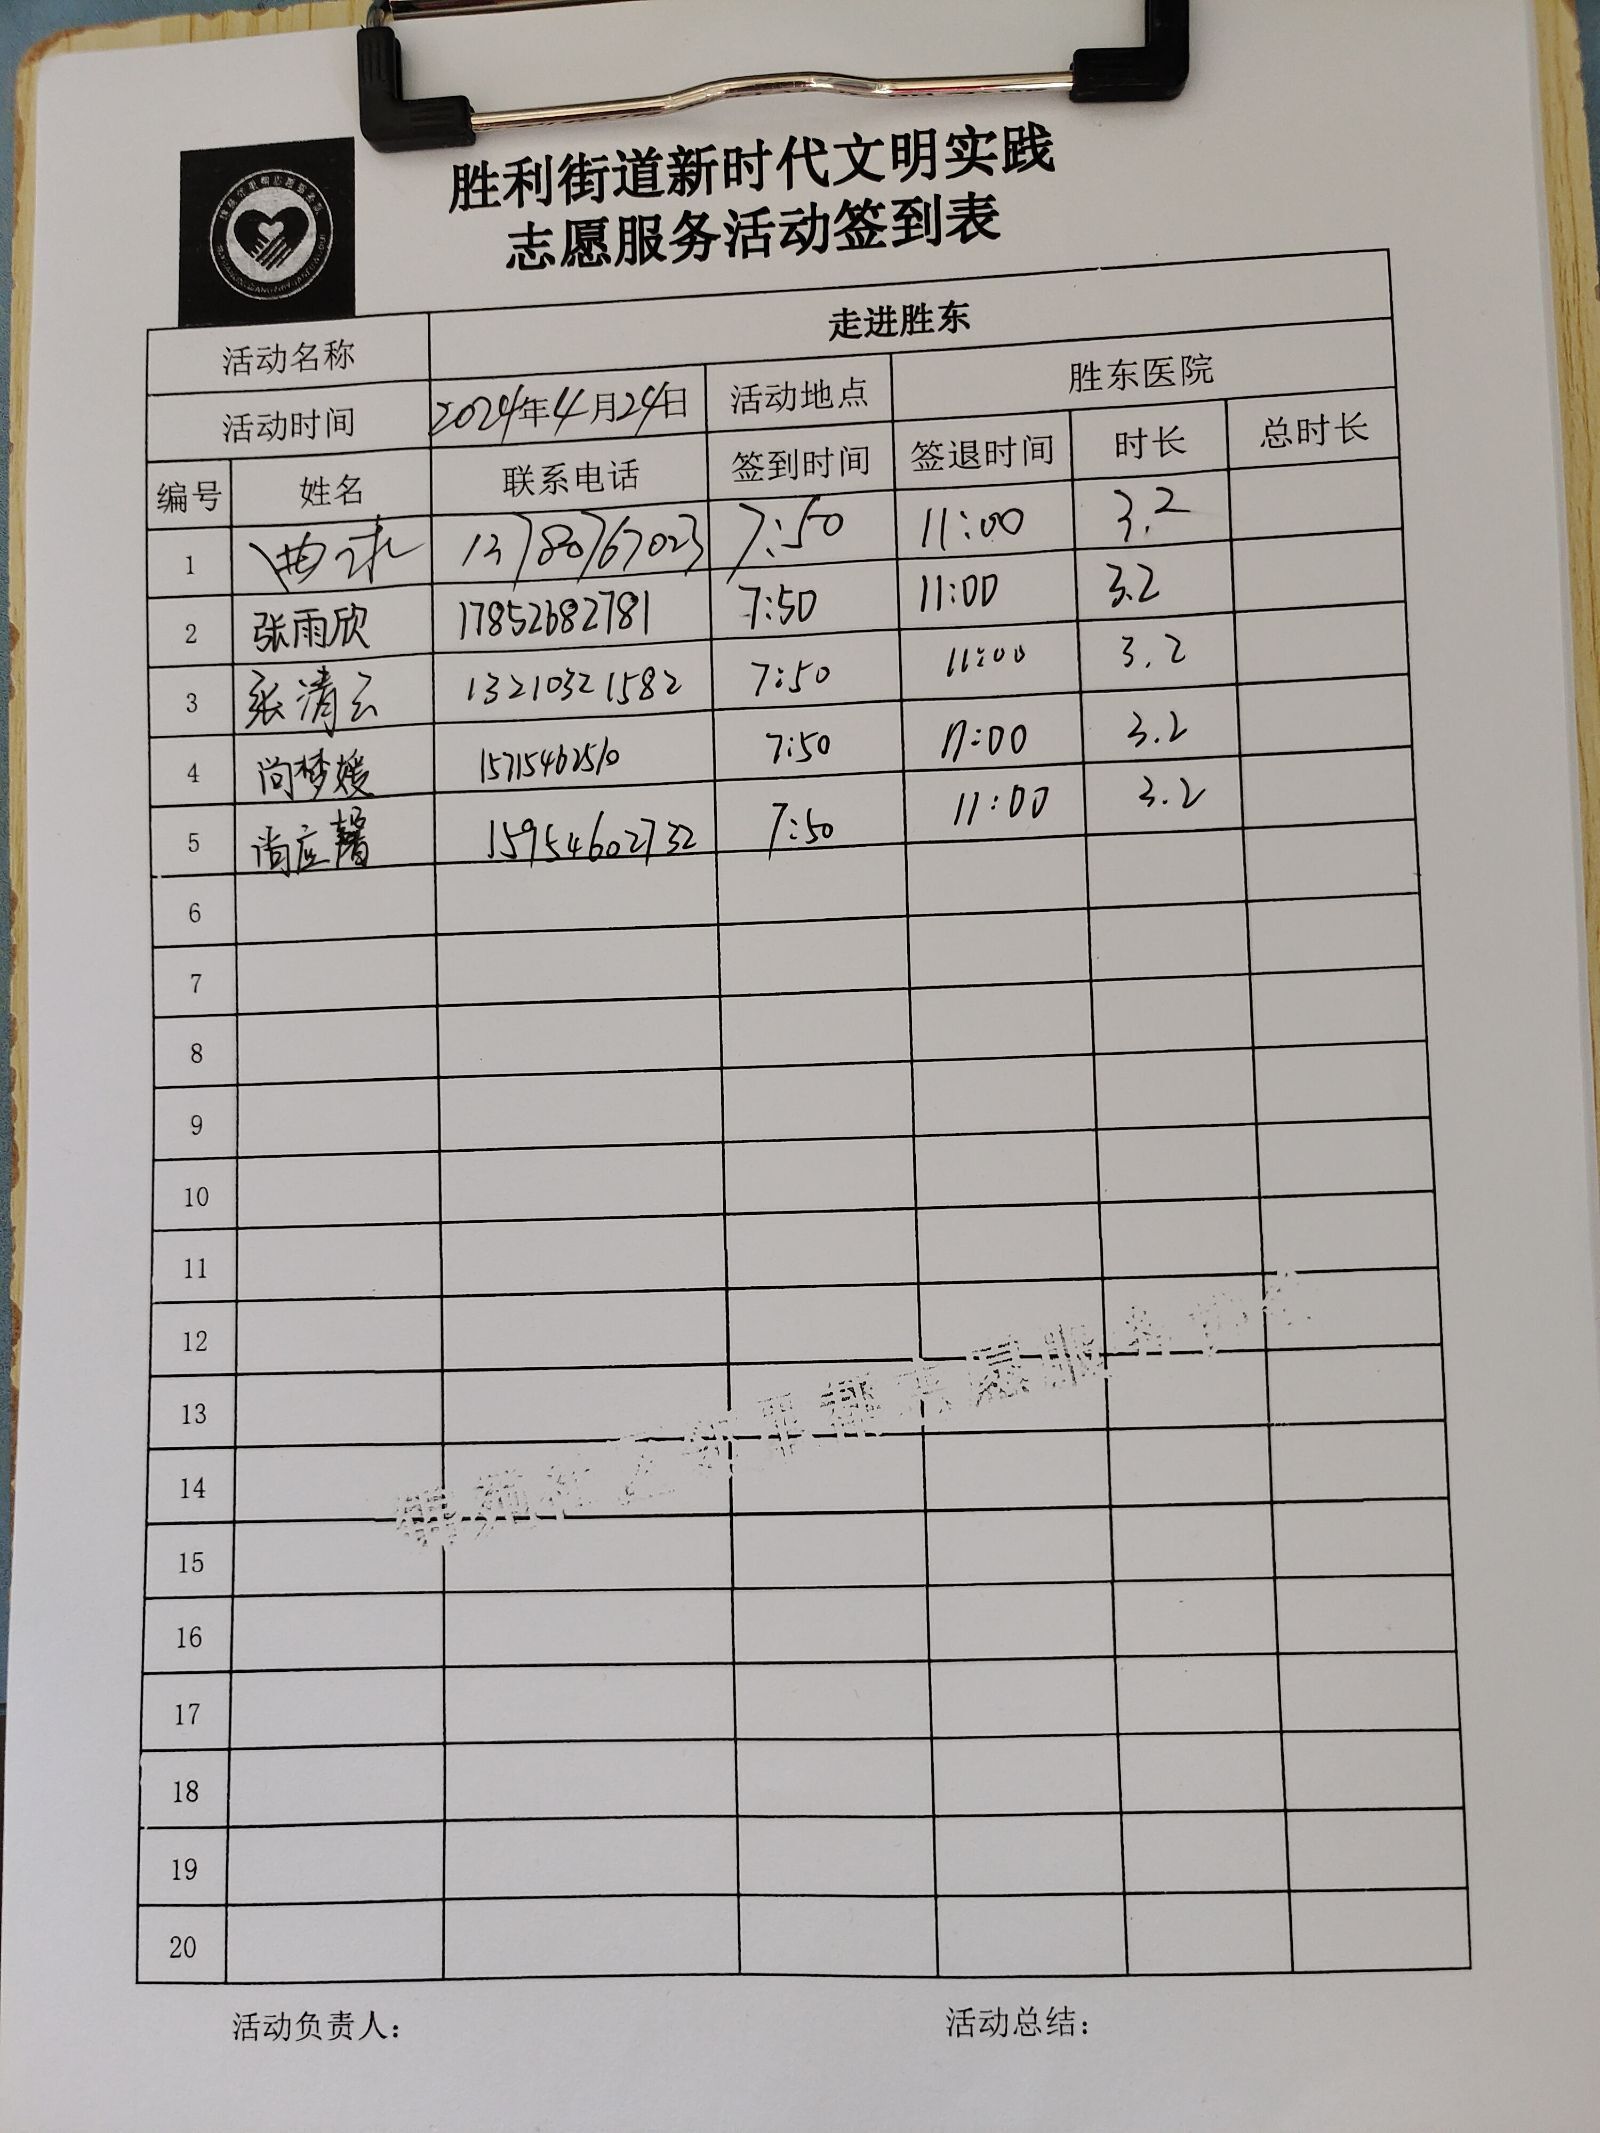 胜利街道新时代文明实践
志愿服务活动签到表
活动名称 走进胜东
活动时间 2024年4月24日 活动地点 胜东医院
编号 姓名 联系电话 签到时间 签退时间 时长 总时长
1 曲 13780767023 7:50 11:00 3.2
2 张雨欣 17852682781 7:50 11:00 3.2
3 张清云 13210321582 7:50 11:00 3.2
4 尚梦媛 15715462510 7:50 11:00 3.2
5 尚应馨 15954602732 7:50 11:00 3.2
6
7
8
9
10
11
12
13
14
15
16
17
18
19
20
活动负责人： 活动总结：